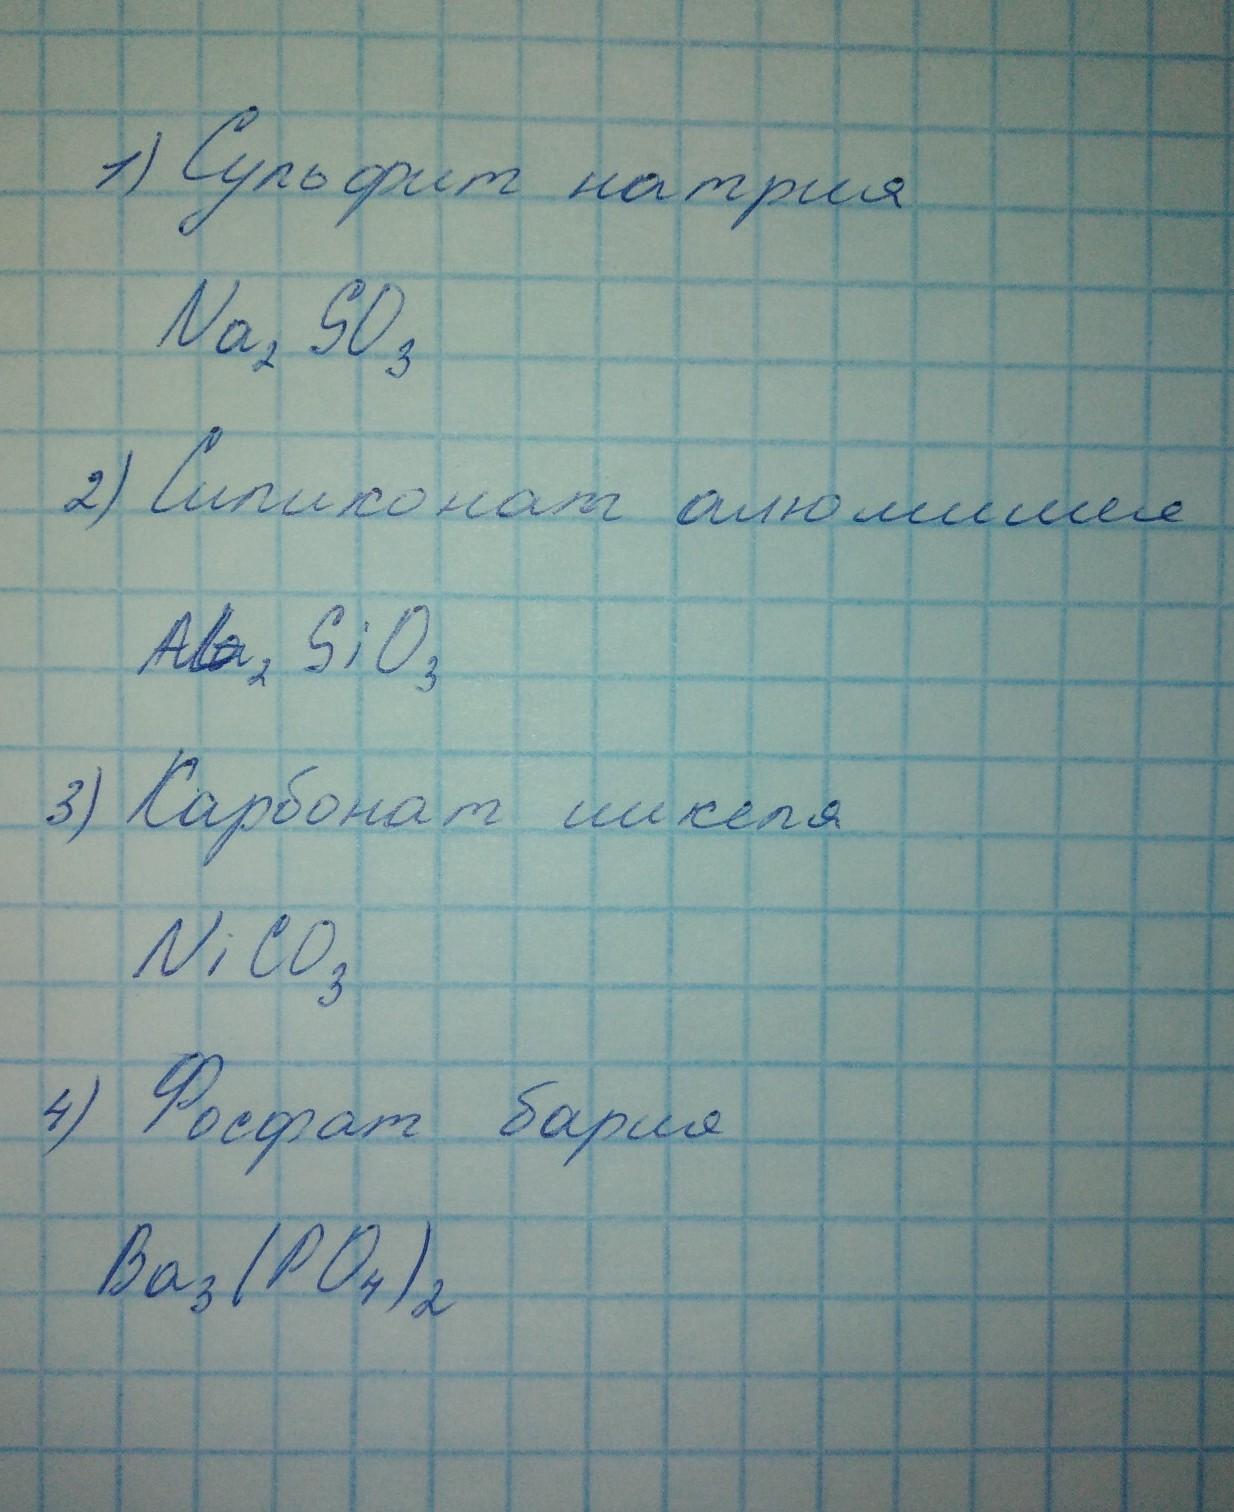 1) Сульфит натрия
Na₂ SO₃
2) Силиконат алюминия
Ala₂ SiO₃
3) Карбонат никеля
NiCO₃
4) Фосфат бария
Ba₃(PO₄)₂